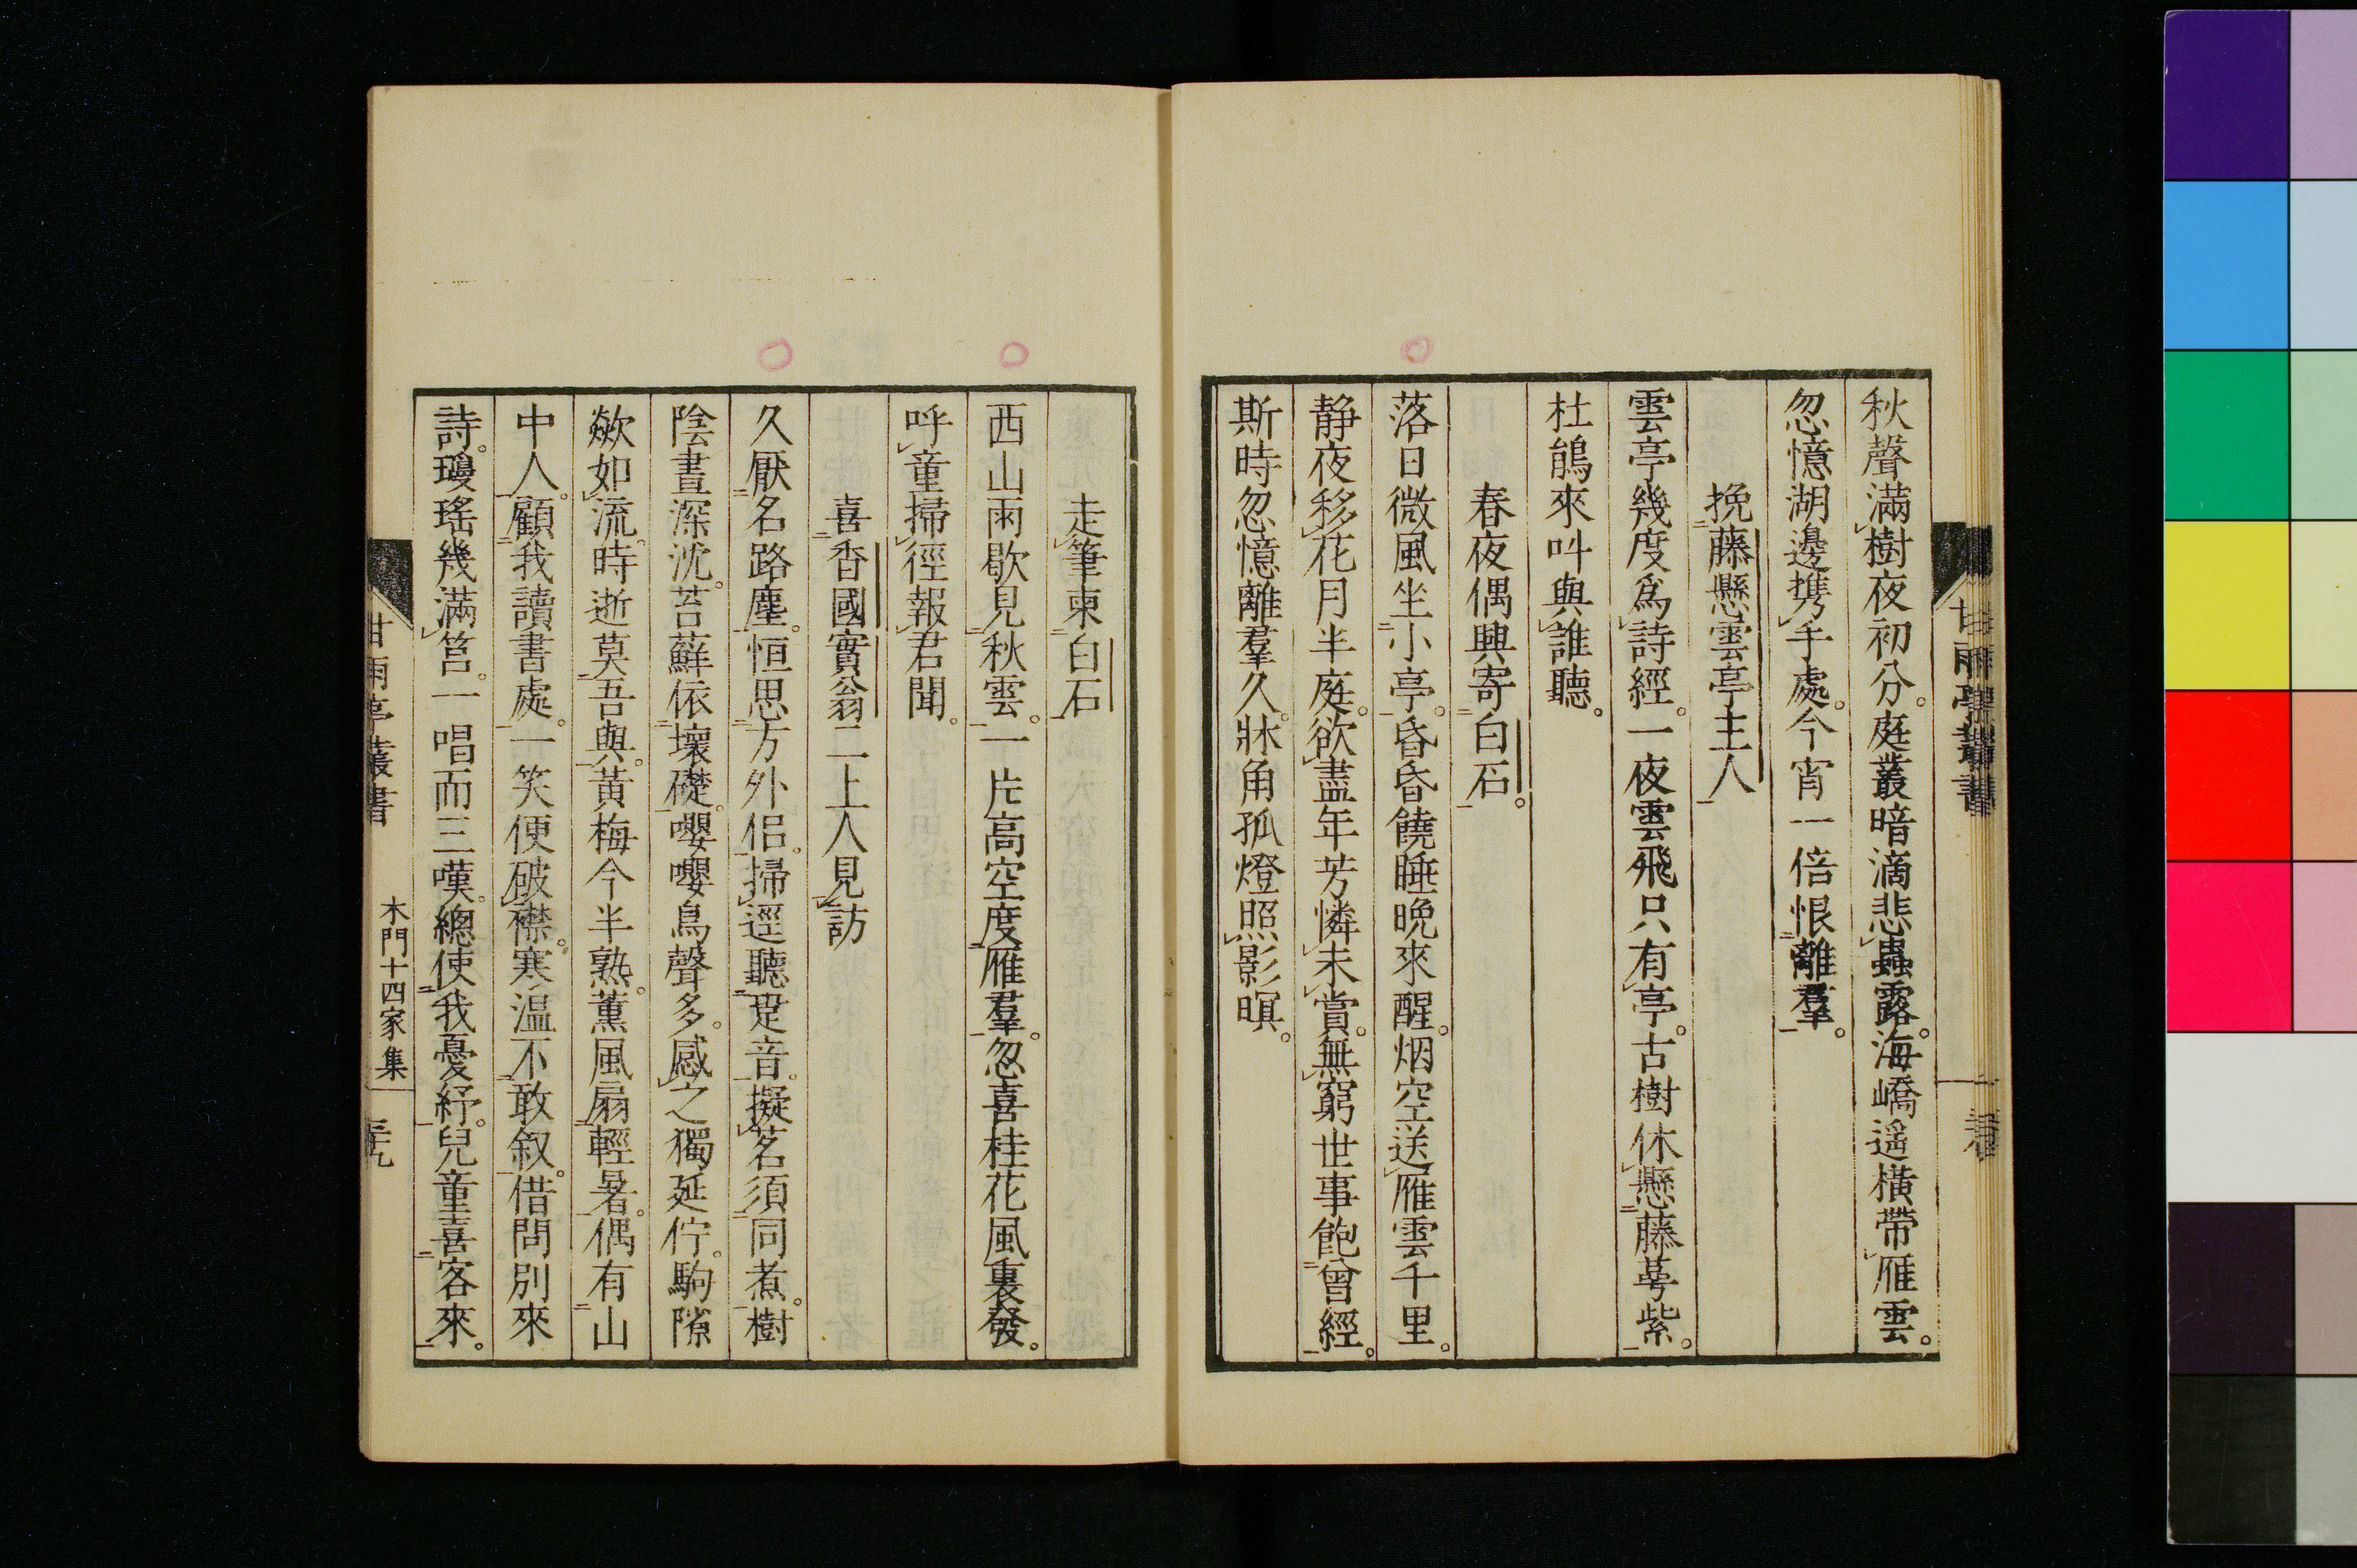 秋聲滿樹夜初分。庭叢暗滴悲蟲露。海嶠遙橫帶雁雲。
忽憶湖邊携手處。今宵一倍恨離羣。
挽藤懸雲亭主人
雲亭幾度爲詩經。一夜雲飛只有亭。古樹休懸藤萼紫。
杜鵑來叫與誰聽。
春夜偶興寄白石。
落日微風坐小亭。昏昏饒睡晚來醒。烟空送雁雲千里。
靜夜移花月半庭。欲盡年芳憐未賞。無窮世事飽曾經。
斯時忽憶離羣久。牀角孤燈照影暝。
走筆柬白石
西山雨歇見秋雲。一片高空度雁羣。忽喜桂花風裏發。
呼童掃徑報君聞。
喜香國實翁二上人見訪
久厭名路塵。恒思方外侶。掃逕聽跫音。擬茗須同煮。樹
陰晝深沈。苔蘚依壞礎。嚶嚶鳥聲多。感之獨延佇。駒隙
歘如流。時逝莫吾與。黃梅今半熟。薰風扇輕暑。偶有山
中人。顧我讀書處。一笑便破襟。寒溫不敢叙。借問別來
詩。瓊瑤幾滿筥。一唱而三嘆。總使我憂紓。兒童喜客來。
甘雨亭叢書
木門十四家集